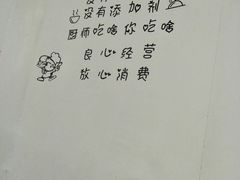 没有添加剂
厨师吃啥你吃啥
良心经营
放心消费